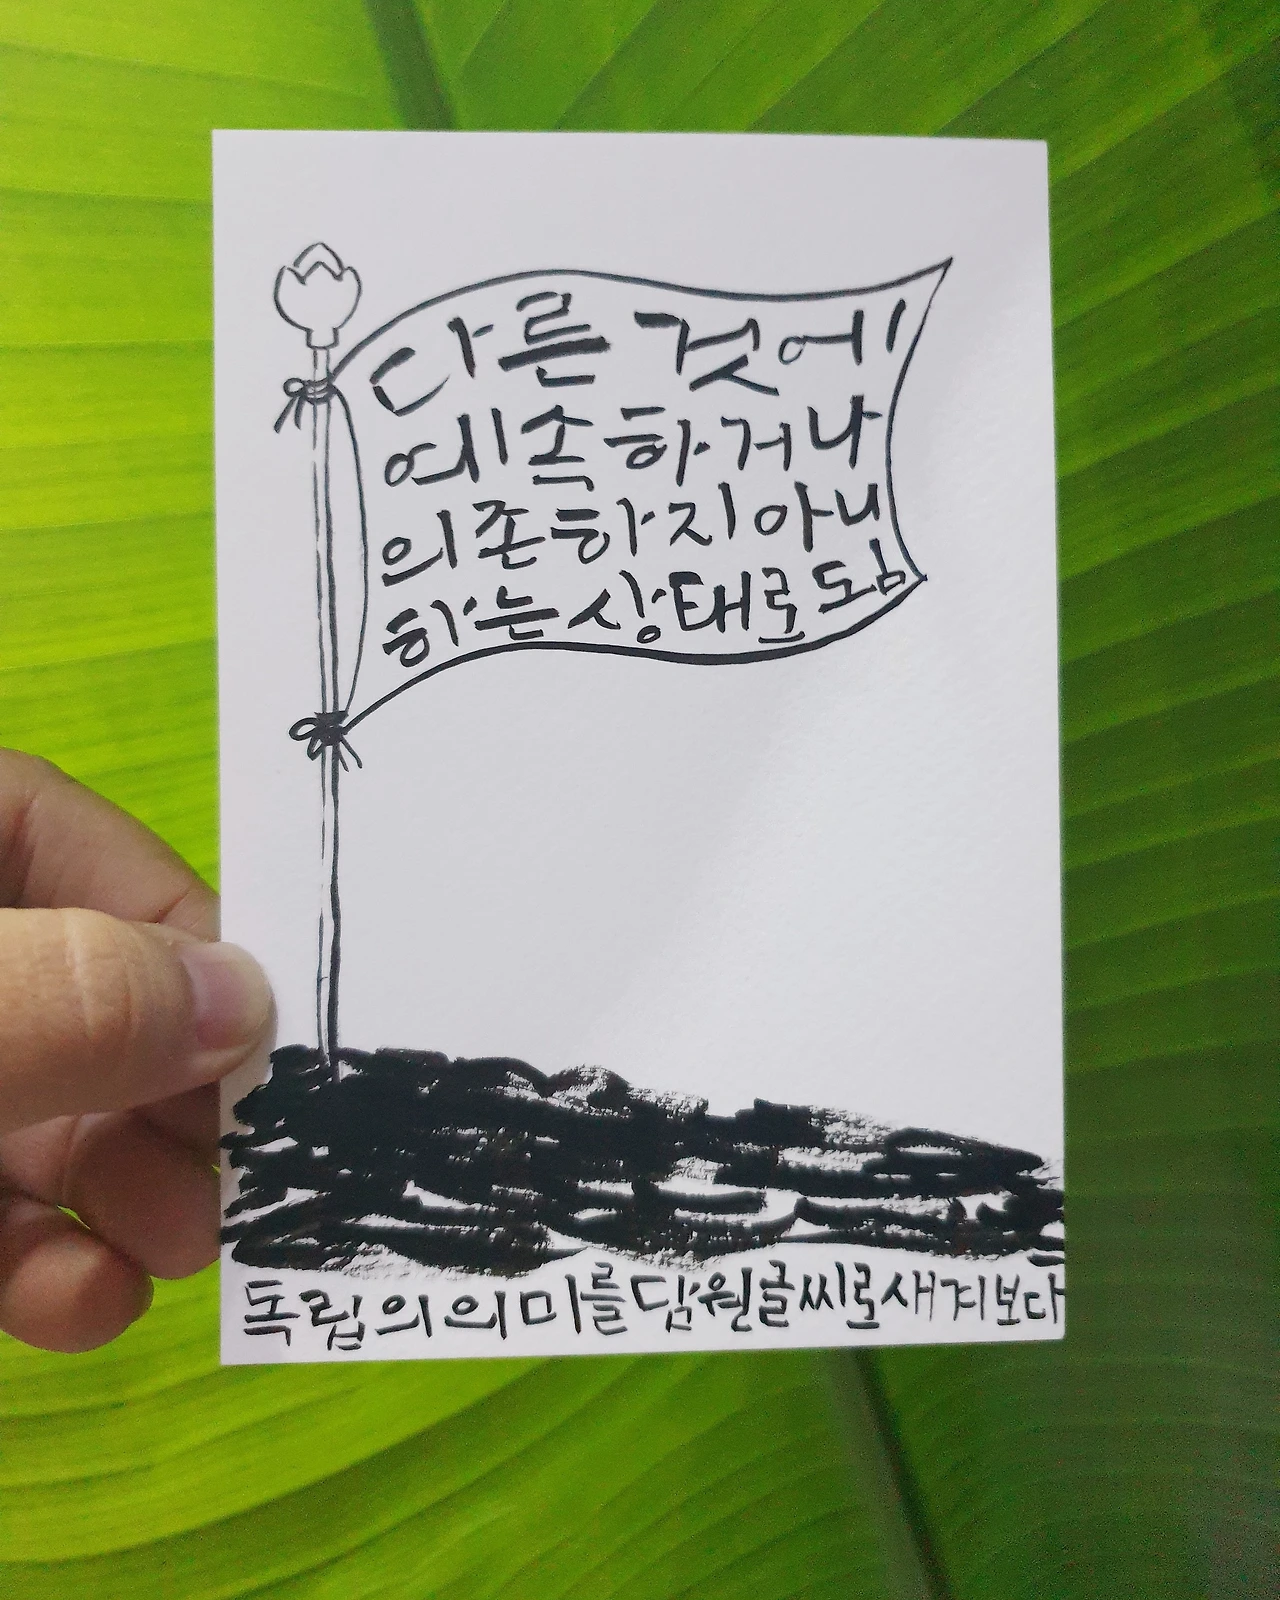 다른 것에
예속하거나
의존하지아니
하는상태로됨
독립의의미를담은글씨로새겨보다